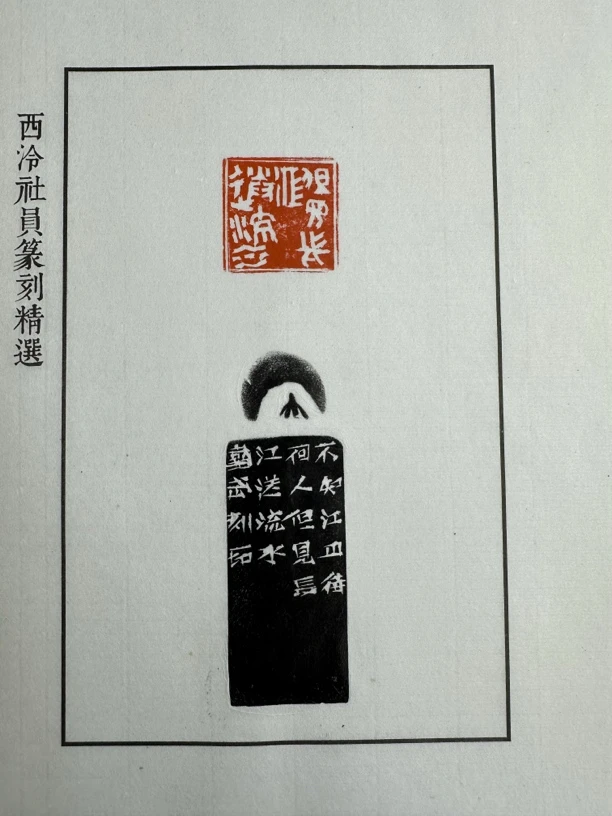 西泠社員篆刻精選
但見長
江
送流水
不知江月待
何人但見長
江送流水
武刻